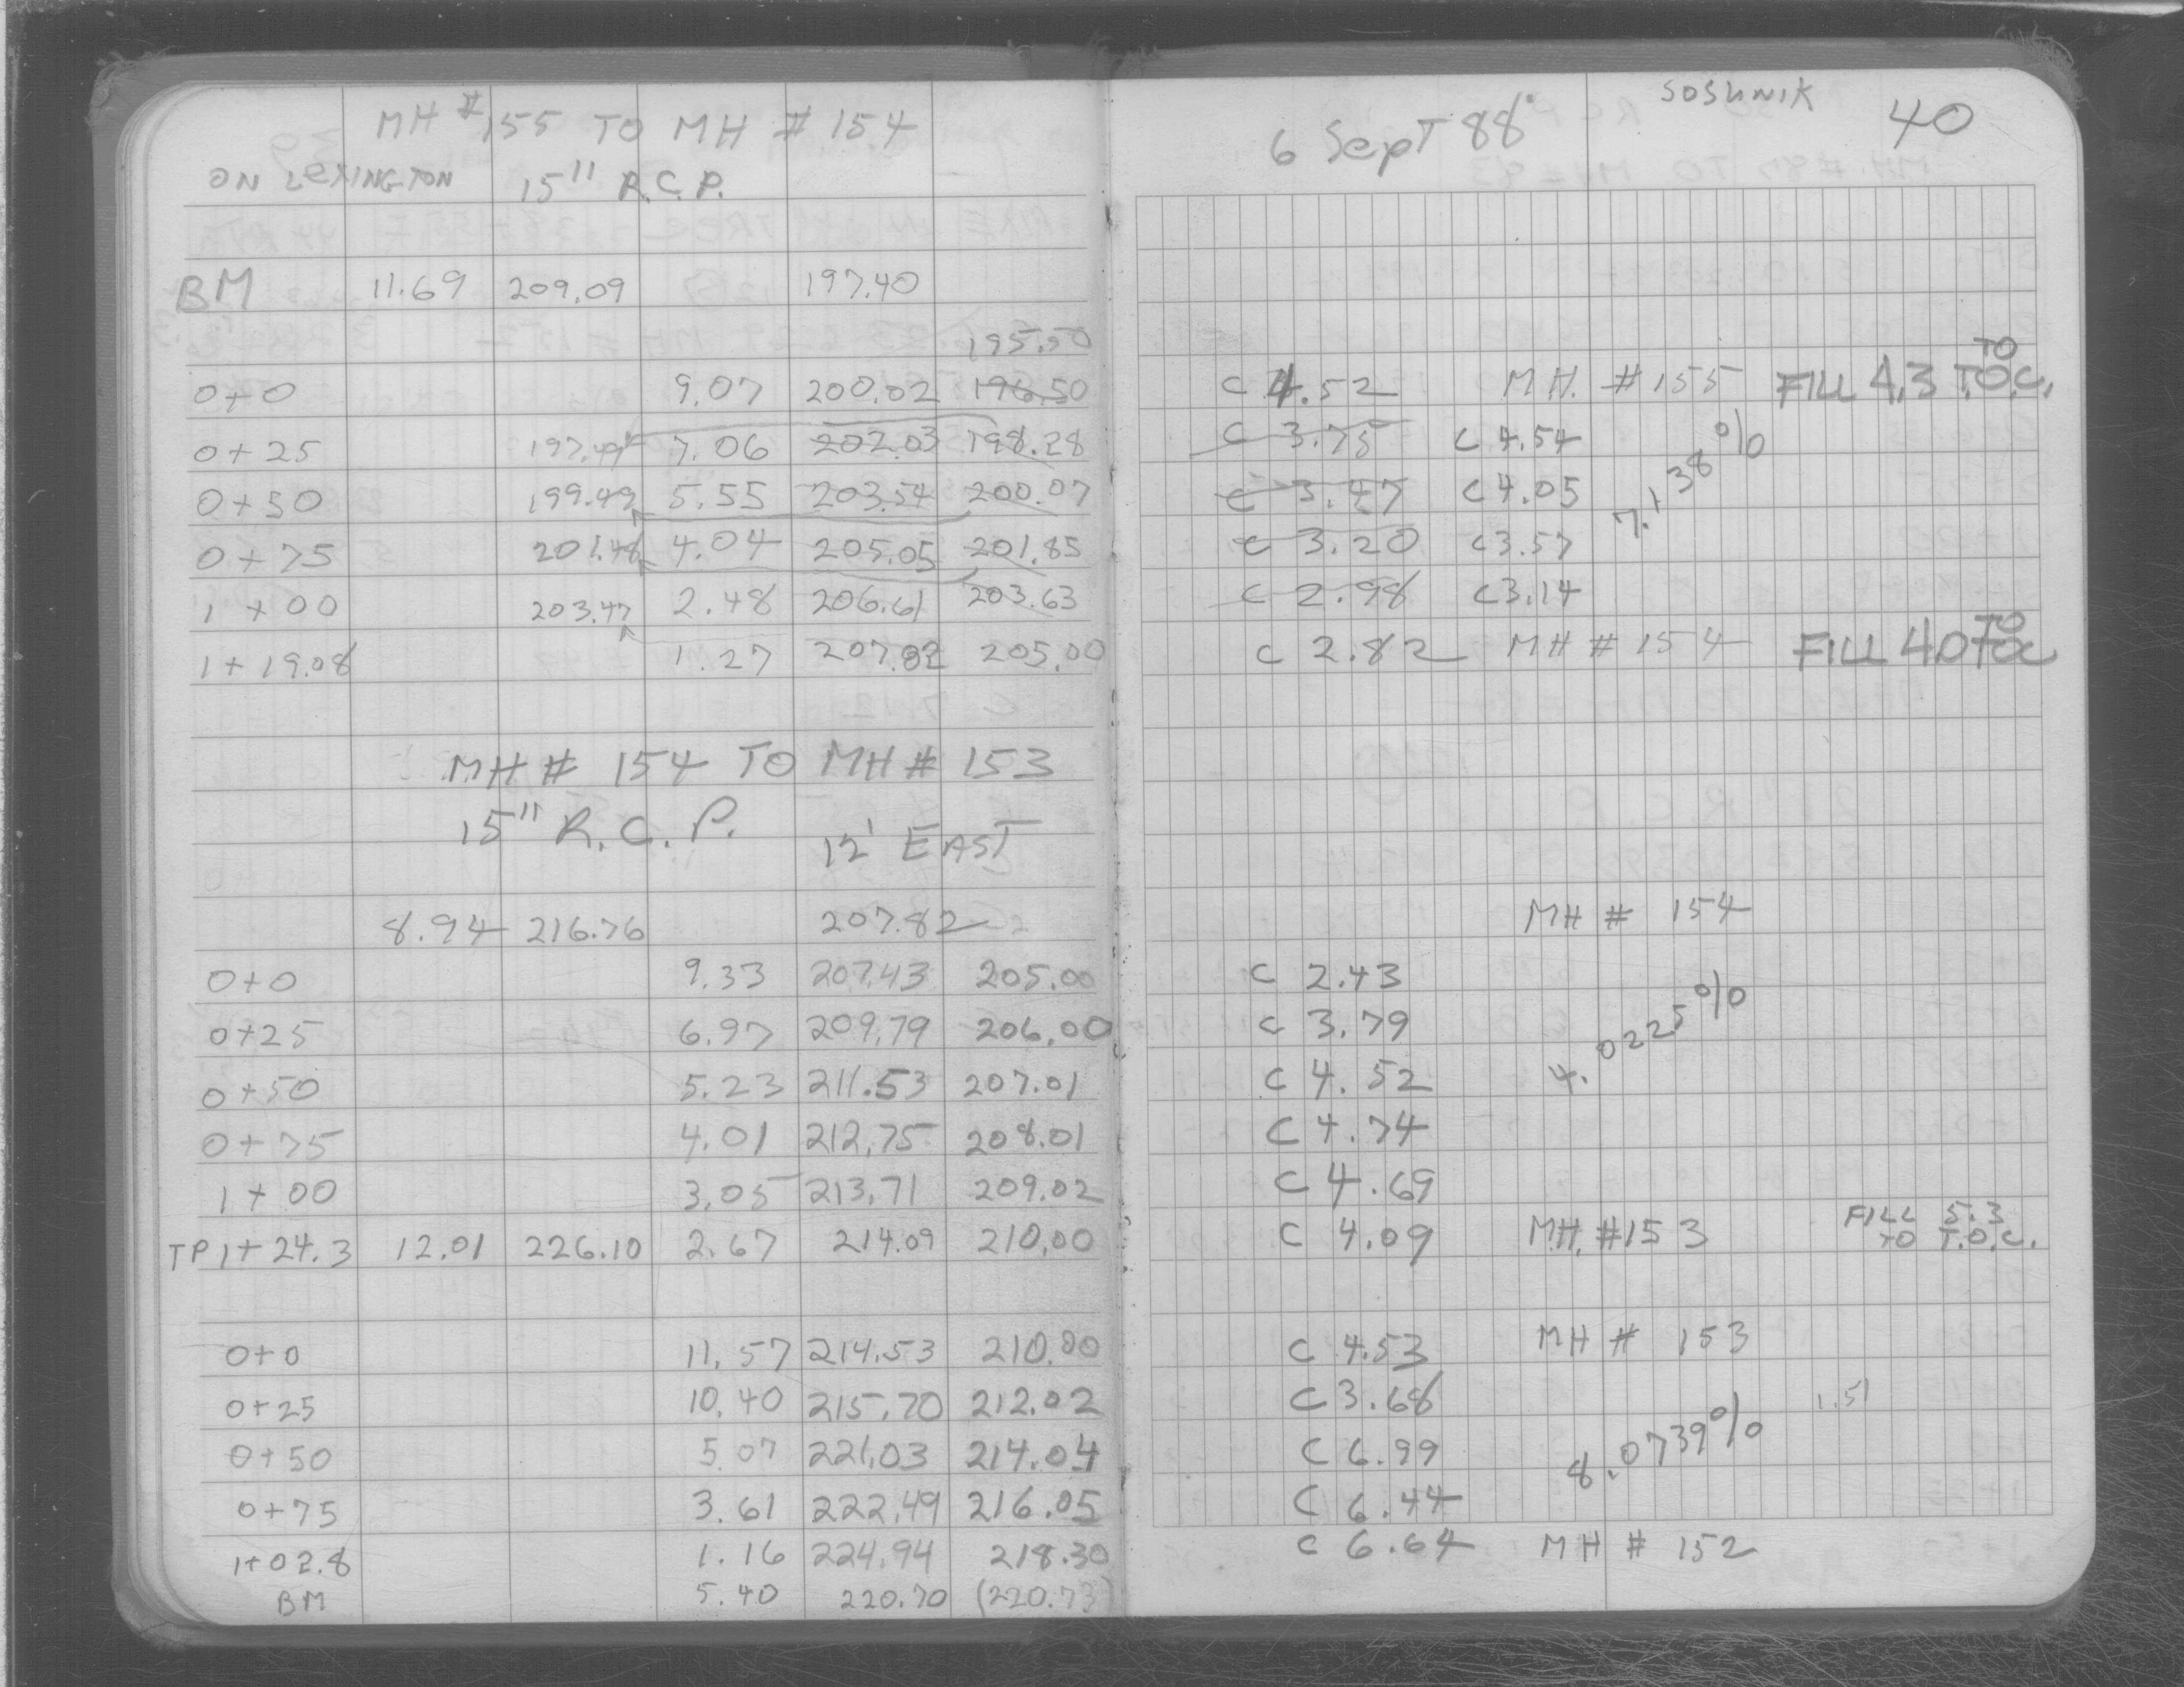 MH #155 TO MH #154
ON LEXINGTON 15" R.C.P.
BM 11.69 209.09 197.40
195.50
0+0 9.07 200.02 196.50
0+25 197.49 7.06 202.03 198.28
0+50 199.49 5.55 203.54 200.07
0+75 201.48 4.04 205.05 201.85
1+00 203.47 2.48 206.61 203.63
1+19.08 1.27 207.82 205.00
MH # 154 TO MH # 153
15" R.C.P. 12' EAST
8.94 216.76 207.82
0+0 9.33 207.43 205.00
0+25 6.97 209.79 206.00
0+50 5.23 211.53 207.01
0+75 4.01 212.75 208.01
1+00 3.05 213.71 209.02
TP 1+24.3 12.01 226.10 2.67 214.09 210.00
0+0 11.57 214.53 210.00
0+25 10.40 215.70 212.02
0+50 5.07 221.03 214.04
0+75 3.61 222.49 216.05
1+02.8 1.16 224.94 218.30
BM 5.40 220.70 (220.73)
6 SepT 88 SOSHNIK 40
C 4.52 MH. #155 FILL 4.3 TO T.O.C.
C 3.75 C 4.54
C 3.47 C 4.05
C 3.20 C 3.57
C 2.98 C 3.14
7.138%
C 2.82 MH # 154 FILL 4.0 TO TOC
MH # 154
C 2.43
C 3.79
C 4.52
C 4.74
C 4.69
4.0225%
C 4.09 MH. #153 FILL 5.3
TO T.O.C.
C 4.53 MH # 153
C 3.68 1.51
C 6.99
C 6.44
8.0739%
C 6.64 MH # 152